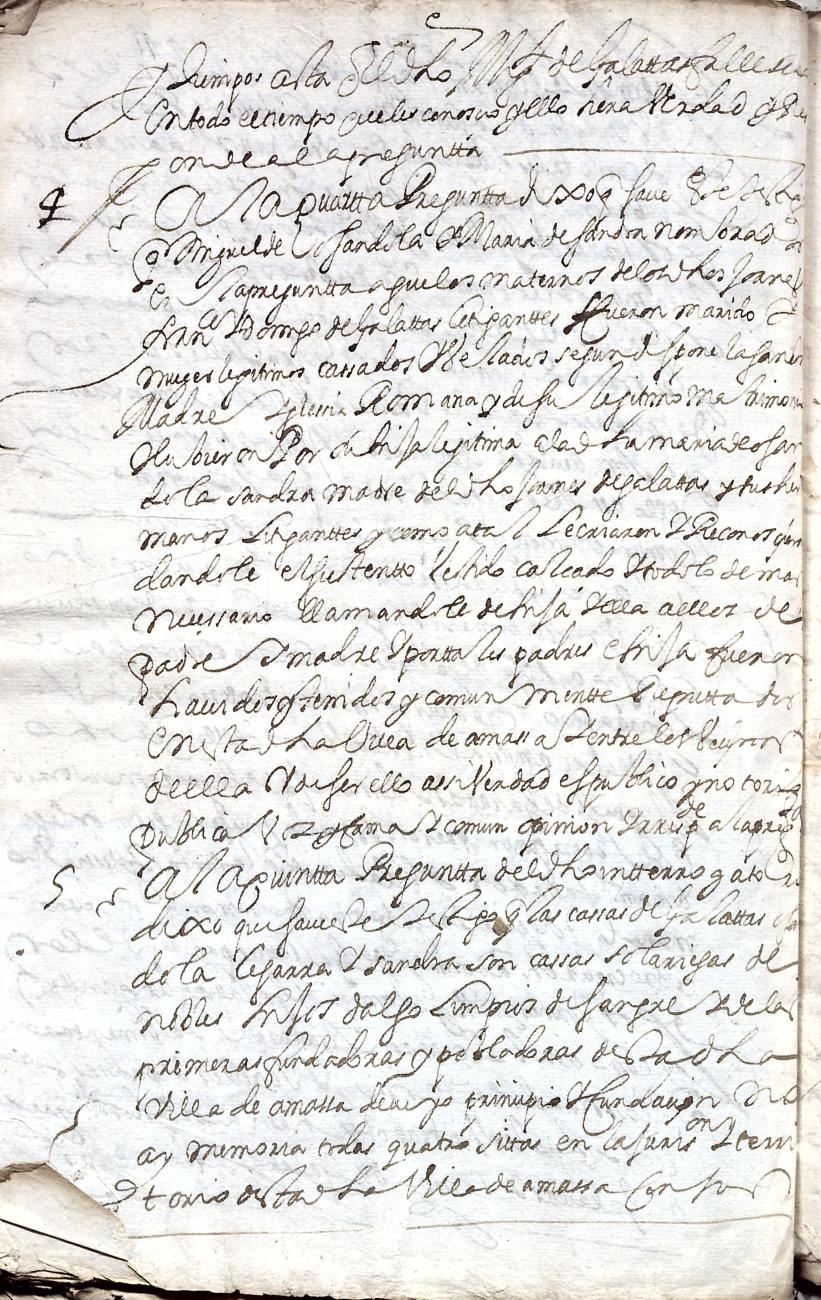 tiempos asta q el dho Mig^l de Galattas
En todo el tiempo que les conoscio y ello hera Verdad y
ponde a la preguntta
4 A la quartta Preguntta dixo q save este testigo
q Miguel de Osandola y Maria de Sandra nombrados
en la preguntta aguelos maternos de los dhos Joanes
fran^co y Domingo de Galattas litigantes fueron marido y
muger legitimos cassados y Velados segun dispone la sancta
Madre Yglessia Romana y de su legitimo matrimonio
Hubieron Por su hija legitima a la dha maria de osan
dola sandra madre del dho Joanes de galattas y sus her
manos Litiganttes y como a tal le criaron y Reconoscieron
dandole el sustentto Vestido calcado y todo lo demas
necessario llamandole de hija y ella a ellos de
padre y madre y por tales padres e hija fueron
havidos y tenidos y comun mentte Reputtados
En esta dha Villa de amassa y entre los Vecinos
de ella y de ser ello assi Verdad es publico y notorio
publica Voz y fama y comun opinion y rresp^de a la preg^ta
5 A la quintta Preguntta del dho intterrogatorio
dixo que save este testigo q las cassas de Galattas osan
dola Legarra y sandra son cassas solariegas de
nobles hijos dalgo Limpios de sangre y de las
primeras fundadoras y pobladoras de esta dha
Villa de amassa de cuyo principio y fundacion no
ay memoria todas quatro sittas en la juris^on y terri
torio de esta dha Villa de amassa con sus